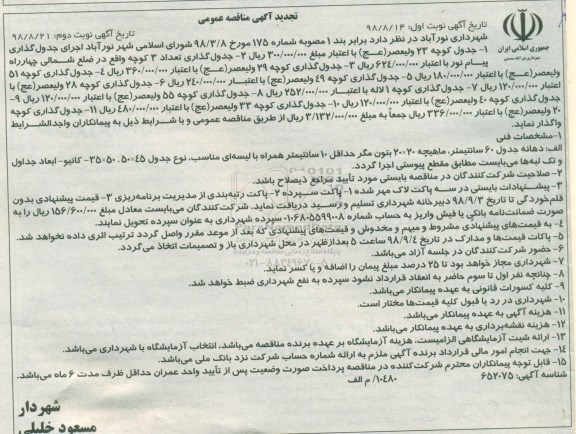 تجدید آگهی مناقصه عمومی
تاریخ آگهی نوبت اول: ۹۸/۸/۱۴
تاریخ آگهی نوبت دوم: ۹۸/۸/۲۱
جمهوری اسلامی ایران
شهرداری نورآباد در نظر دارد برابر بند ۱ مصوبه شماره ۱۷۵ مورخ ۹۸/۳/۸ شورای اسلامی شهر نورآباد اجرای جدول‌گذاری
۱- جدول کوچه ۲۳ ولیعصر(عـج) با اعتبار مبلغ ۳۰۰/۰۰۰/۰۰۰ ریال ۲- جدول‌گذاری تعداد ۳ کوچه واقع در ضلع شمالی چهارراه
پیام نور با اعتبار ۶۲۴/۰۰۰/۰۰۰ ریال ۳- جدول‌گذاری کوچه ۲۹ ولیعصر(عـج) با اعتبار ۳۶۰/۰۰۰/۰۰۰ ریال ۴- جدول‌گذاری کوچه ۵۱
ولیعصر(عج) با اعتبار ۱۸۰/۰۰۰/۰۰۰ ریال ۵- جدول‌گذاری کوچه ۴۹ ولیعصر(عج) با اعتبار ۲۴۰/۰۰۰/۰۰۰ ریال ۶- جدول‌گذاری کوچه ۲۸ ولیعصر(عج) با
اعتبار ۱۲۰/۰۰۰/۰۰۰ ریال ۷- جدول‌گذاری کوچه لاله با اعتبار ۲۵۲/۰۰۰/۰۰۰ ریال ۸- جدول‌گذاری کوچه ۵۵ ولیعصر(عج) با اعتبار ۱۲۰/۰۰۰/۰۰۰ ریال ۹-
جدول‌گذاری کوچه ۴۰ ولیعصر(عج) با اعتبار ۱۲۰/۰۰۰/۰۰۰ ریال ۱۰- جدول‌گذاری کوچه ۳۳ ولیعصر(عج) با اعتبار ۴۸۰/۰۰۰/۰۰۰ ریال ۱۱- جدول‌گذاری کوچه
ولیعصر(عج) با اعتبار ۳۳۶/۰۰۰/۰۰۰ ریال جمعاً به مبلغ ۳/۱۳۲/۰۰۰/۰۰۰ ریال از طریق مناقصه عمومی و با شرایط ذیل به پیمانکاران واجدالشرایط
واگذار نماید.
۱-مشخصات فنی
الف: دهانه جدول ۶۰ سانتیمتر، ماهیچه ۲۰×۲۰ بتون مگر حداقل ۱۰ سانتیمتر همراه با لیسه‌ای مناسب، نوع جدول ۴۵×۵۰، ۵۰×۳۵- کانیو- ابعاد جداول
و تک لبه‌ها می‌بایست مطابق مقطع پیوستی اجرا گردد.
۲- صلاحیت شرکت‌کنندگان در مناقصه بایستی مورد تأیید مراجع ذیصلاح باشد.
۳- پیشنهادات بایستی در سه پاکت لاک مهر شده ۱- پاکت سپرده ۲- پاکت رتبه‌بندی از مدیریت برنامه‌ریزی ۳- قیمت پیشنهادی بدون
قلم‌خوردگی تا تاریخ ۹۸/۹/۳ دبیرخانه شهرداری تسلیم و رسید دریافت نماید. شرکت کنندگان می‌بایست معادل مبلغ ۱۵۶/۶۰۰/۰۰۰ ریال را به
صورت ضمانت‌نامه بانکی یا فیش واریز به حساب شماره ۰۱۰۶۸۰۵۵۹۹۰۰۸ سپرده شهرداری به عنوان سپرده تحویل نمایند.
۴- به قیمت‌های پیشنهادی مشروط و مبهم و مخدوش و قیمت‌های پیشنهادی که بعد از موعد مقرر واصل گردد ترتیب اثری داده نخواهد شد.
۵- پاکات قیمت‌ها و مدارک در تاریخ ۹۸/۹/۴ ساعت ۵ بعدازظهر در محل شهرداری باز و تصمیمات اتخاذ می‌گردد.
۶- حضور شرکت‌کنندگان در جلسه آزاد می‌باشد.
۷- شهرداری مجاز خواهد بود تا ۲۵ درصد مبلغ پیمان را اضافه و یا کسر نماید.
۸- چنانچه نفر اول تا سوم حاضر به انعقاد قرارداد نشود سپرده به نفع شهرداری ضبط خواهد شد.
۹- کلیه کسورات قانونی به عهده پیمانکار می‌باشد.
۱۰- شهرداری در رد یا قبول کلیه قیمت‌ها مختار است.
۱۱- هزینه آگهی به عهده پیمانکار می‌باشد.
۱۲- هزینه نقشه‌برداری به عهده پیمانکار می‌باشد.
۱۳- ارائه شیت آزمایشگاهی الزامیست، هزینه آزمایشگاه بر عهده برنده مناقصه می‌باشد، انتخاب آزمایشگاه با شهرداری می‌باشد.
۱۴- جهت انجام امور مالی قرارداد برنده آگهی ملزم به ارائه شماره حساب شرکت نزد بانک ملی می‌باشد.
۱۵- قابل توجه پیمانکاران محترم شرکت‌کننده در مناقصه پرداخت صورت وضعیت پس از تأیید واحد عمران حداقل ظرف مدت ۶ ماه می‌باشد.
شناسه آگهی: ۶۵۲۰۷۵
۱۰۴۸۰/ م الف
شهردار
مسعود خلیلی